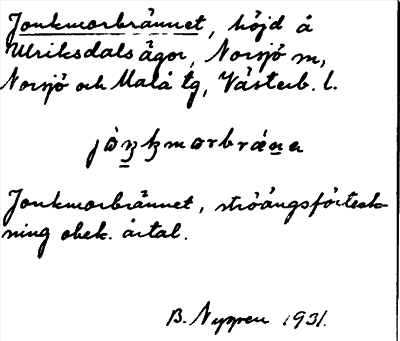 Jonkmorbrännet, höjd å
Ulriksdals ägor, Norsjö sn,
Norsjö och Malå tg, Västerb. l.
Jonkmorbrännet, ströängsförteck-
ning obek. årtal.
B. Nyppen 1931.